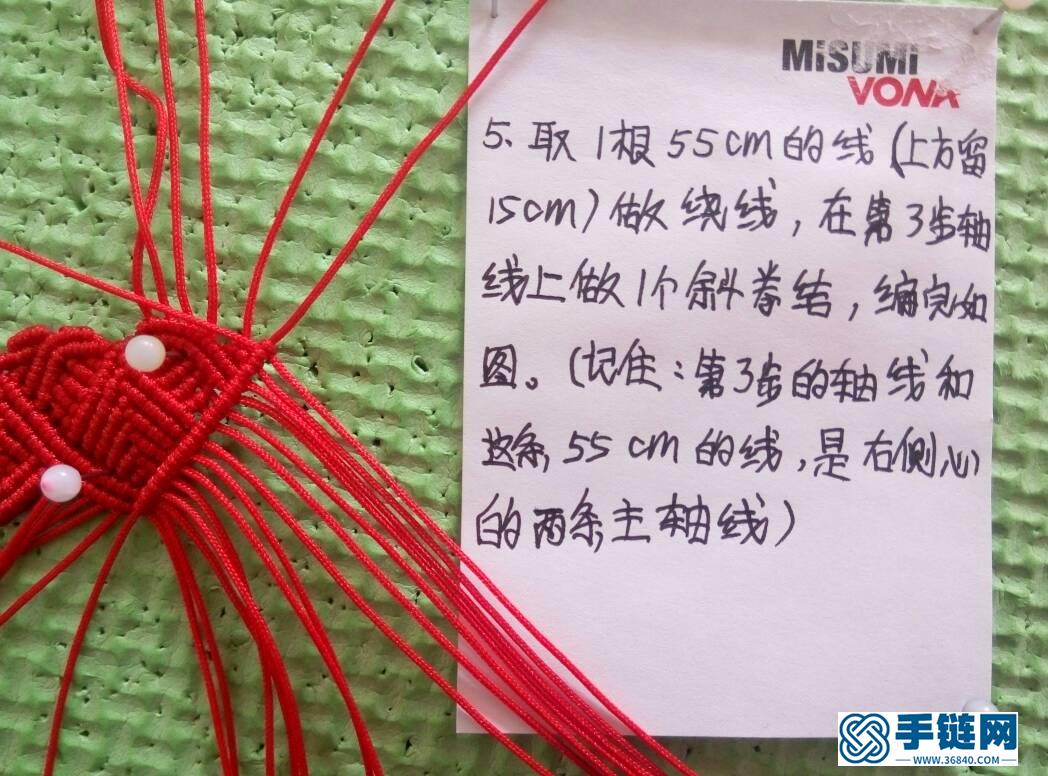 MiSUMi
VONA
5、取1根55cm的线(上方留
15cm)做绕线，在第3步轴
线上做1个斜卷结，编完如
图。(记住：第3步的轴线和
这条55cm的线，是右侧心
的两条主轴线)
手链网
WWW.36840.COM